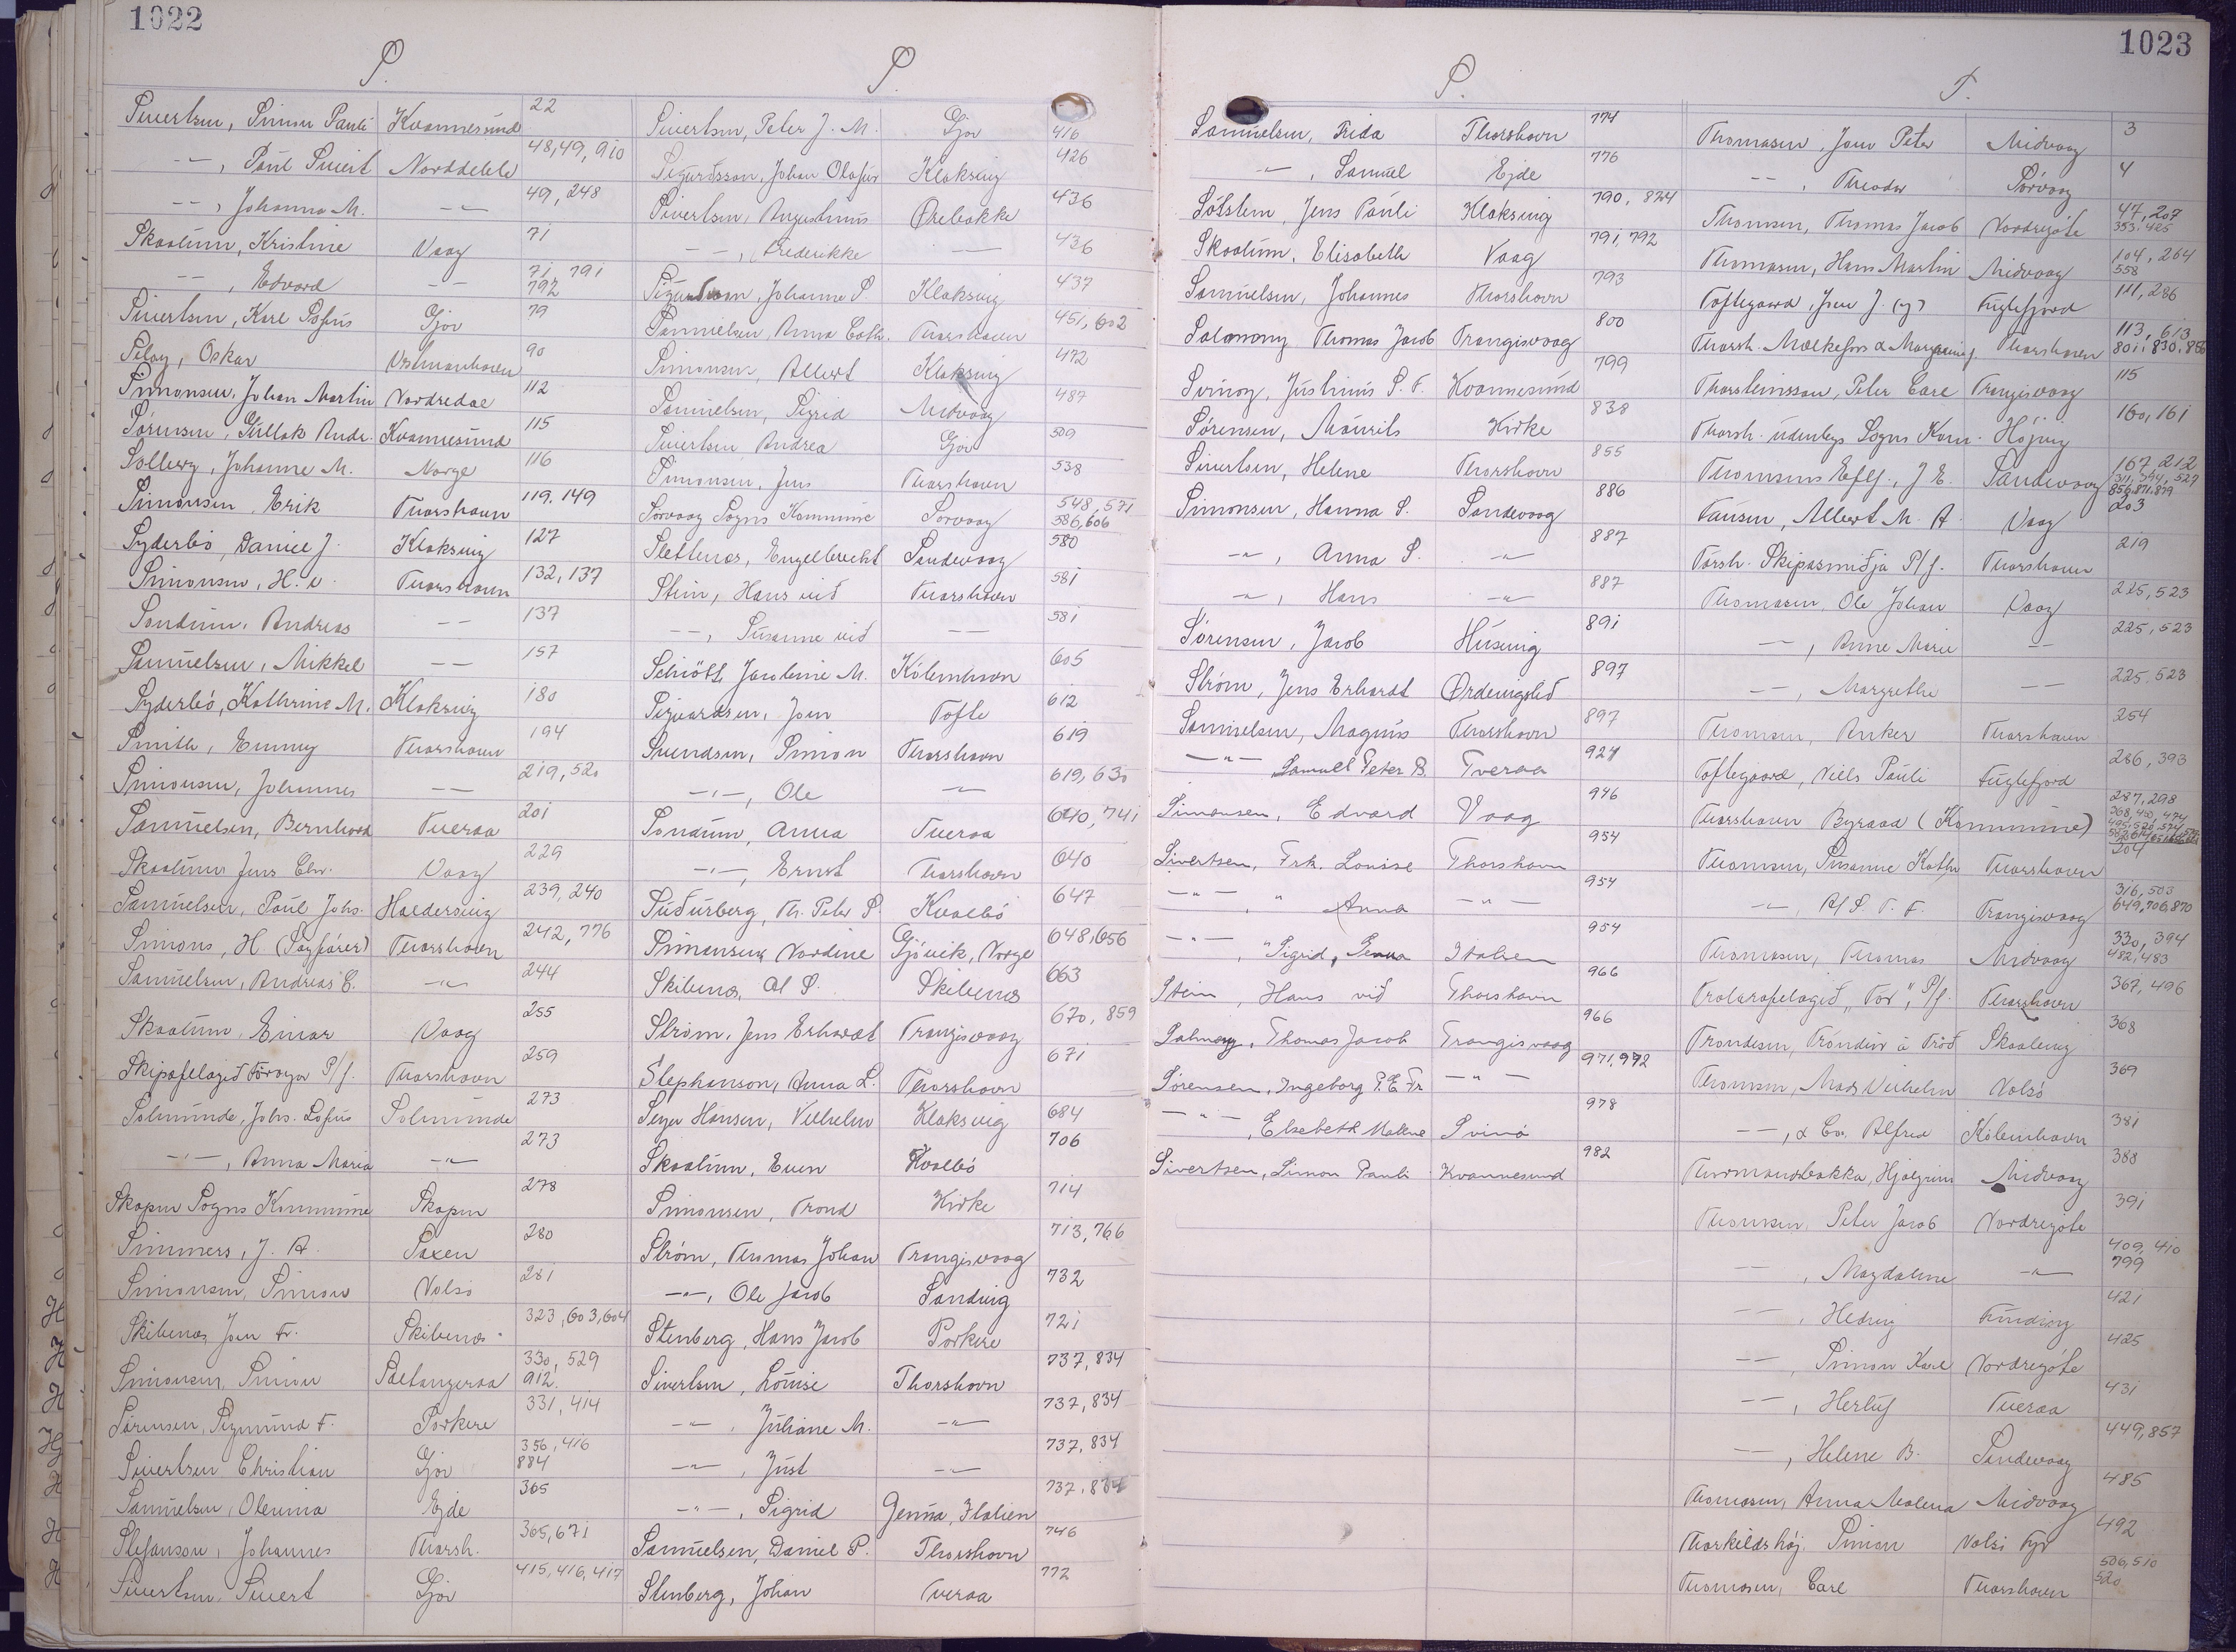 1022
S.
Sivertsen, Simon Pauli Kvannesund 22
-"-, Paul Sivert Norddeble 48, 49, 910
-"-, Johanna M. -"- 49, 248
Skaalum, Kristine Vaag 71
-"-, Edvard -"- 71, 791 792
Sivertsen, Karl Sofus Gjov 79
Siloy, Oskar Vestmanhavn 90
Simonsen, Johan Martin Nordredal 112
Sörensen, Gullak Andr. Kvannesund 115
Solberg, Johanne M. Norge 116
Simonsen, Erik Thorshavn 119. 149
Syderbö, Daniel J. Klaksvig 127
Simonsen, H. Thorshavn 132, 137
Sondum, Andreas -"- 137
Samuelsen, Mikkel -"- 157
Syderbö, Kathrine M. Klaksvig 180
Smith, Emmy Thorshavn 194
Simonsen, Johannes -"- 219, 520
Samuelsen, Bernhard Tveraa 201
Skaalum Jens Chr. Vaag 229
Samuelsen, Paul Johs. Haldersvig 239, 240
Simons, H (Sagförer) Thorshavn 242, 776
Samuelsen, Andreas C. -"- 244
Skaalum, Einar Vaag 255
Skipafelagið Föroyar P/f. Thorshavn 259
Solmunde, Johs. Sofus Solmunde 273
-"-, Anna Maria -"- 273
Skopun Sogns Kommune Skopun 278
Simmers, J. A. Saxen 280
Simonsen, Simon Nolsö 281
Skibenes Jon Fr. Skibenes 323, 603, 604
Simonsen, Simon Saltangeraa 330, 529 912.
Sörensen, Sigmund F. Porkere 331, 414
Sivertsen Christian Gjov 356, 416 884
Samuelsen, Olevina Ejde 365
Stefansson, Johannes Thorsh. 365, 671
Sivertsen, Sivert Gjov 415, 416, 417
S.
Sivertsen, Peter J. M. Gjov 416
Sigurdsson, Johan Olafur Klaksvig 426
Sivertsen, Augustinus Ørebakke 436
-"-, Frederikke -"- 436
Sigurdsson, Johanne S. Klaksvig 437
Samuelsen, Anna Cath. Thorshavn 451, 602
Simonsen, Albert Klaksvig 472
Samuelsen, Sigrid Midvaag 487
Sivertsen, Andrea Gjov 509
Simonsen, Jens Thorshavn 538
Sorvaag Sogns Kommune Sorvaag 548, 571 586, 606
Slettenes, Engelbrecht Sandevaag 580
Stein, Hans við Thorshavn 581
-"-, Susanne við -"- 581
Schiött, Jacobine M. Köbenhavn 605
Sigvardsen, Jon Tofte 612
Svendsen, Simon Thorshavn 619
-"-, Ole -"- 619, 630
Sondum, Anna Tveraa 640, 741
-"-, Ernst Thorshavn 640
Suðurberg, Th. Peter S. Kvalbö 647
Simonsen, Nordine Gjövik, Norge 648, 656
Skibenes, Al S. Skibenes 663
Ström, Jens Erhardt Trangisvaag 670, 859
Stephanson, Anna L. Thorshavn 671
Seyer Hansen, Vilhelm Klaksvig 684
Skaalum, Even Kvalbö 706
Simonsen, Trond Kirke 714
Ström, Thomas Johan Trangisvaag 713, 766
-"-, Ole Jacob Sandvig 732
Stenberg, Hans Jacob Porkere 721
Sivertsen, Louise Thorshavn 737, 834
-"-, Juliane M. -"- 737, 834
-"-, Just -"- 737, 834
-"-, Sigrid Genua, Italien 737, 834
Samuelsen, Daniel P. Thorshavn 746
Stenberg, Johan Tveraa 772
1023
S.
Samuelsen, Frida Thorshavn 774
-"-, Samuel Ejde 776
Sólstein, Jens Pauli Klaksvig 790, 824
Skaalum, Elisabeth Vaag 791, 792
Samuelsen, Johannes Thorshavn 793
Salomony Thomas Jacob Trangisvaag 800
Svinoy, Justinus S. F. Kvannesund 799
Sørensen, Mourits Kirke 838
Sivertsen, Helene Thorshavn 855
Simonsen, Hanna S. Sandevaag 886
-"-, Anna S. -"- 887
-"-, Hans -"- 887
Sørensen, Jacob Husevig 891
Strøm, Jens Erhardt Ørdevigslið 897
Samuelsen, Magnus Thorshavn 897
-"- Samuell Peter B. Tveraa 924
Simonsen, Edvard Vaag 946
Sivertsen, Frk. Louise Thorshavn 954
-"-, " Anna -"- 954
-"-, " Sigrid, Genua Italien 954
Stein, Hans við Thorshavn 966
Salmony, Thomas Jacob Trangisvaag 966
Sörensen, Ingeborg P. E. Fr -"- 971, 972
-"-, Elsebeth Malene Svinö 978
Sivertsen, Simon Pauli Kvannesund 982
T.
Thomasen, Jens Peter Midvaag 3
-"-, Theodor Sörvaag 4
Thomsen, Thomas Jacob Nordregöte 47, 207 353, 425
Thomasen, Hans Martin Midvaag 104, 264 558
Toftegaard, Jens J. Fuglefjord 111, 286
Thorsh. Mælkefors & Margarinef. Thorshavn 113, 613 801, 830, 886
Thorsteinsson, Peter Carl Trangisvaag 115
Thorsh. udenbys Sogns Kom. Höjvig 160, 161
Thomsens Eftf., J. E. Sandevaag 167, 212 311, 394, 529 856, 871, 879
Tausen, Albert M. A. Vaag 203
Tórsh. Skipasmiðja P/f. Thorshavn 219
Thomasen, Ole Johan Vaag 225, 523
-"-, Anne Marie -"- 225, 523
-"-, Margrethe -"- 225, 523
Thomsen, Anker Thorshavn 254
Toftegaard, Niels Pauli Fuglefjord 286, 393
Thorshavn Byraad (Kommune) 287, 298
Thomsen, Susanne Kathr. Thorshavn 304
-"-, A/S. T. F. Trangisvaag 316, 503 649, 706, 870
Thomasen, Thomas Midvaag 330, 394 482, 483
Trolarafelagið "Tor", P/f. Thorshavn 367, 496
Trondesen, Tróndur á Tröð Skaalevig 368
Thomsen, Mads Vilhelm Nolsö 369
-"-, & Co. Alfred Köbenhavn 381
Thormansbakka, Hjalgrim Midvaag 388
Thomsen, Peter Jacob Nordregöte 391
-"-, Magdalene -"- 409, 410 799
-"-, Hedvig Funding 421
-"-, Simon Karl Nordregöte 425
-"-, Herluf Tveraa 431
-"-, Helene B. Sandevaag 449, 857
Thomasen, Anna Malena Midvaag 485
Thorkildshöj, Simon Nolsö Fyr 492
Thomasen, Carl Thorshavn 506, 510 520